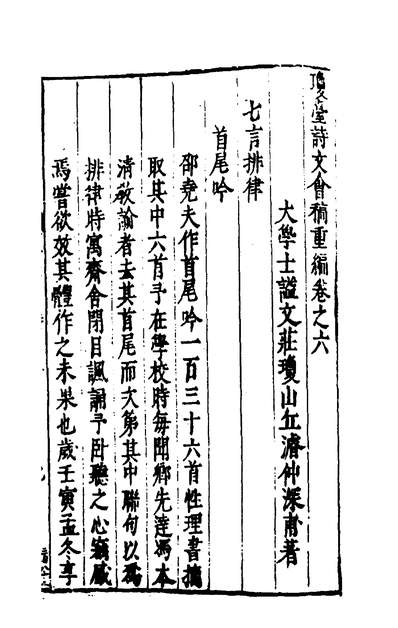 瓊臺詩文會稿重編卷之六
大學士謚文莊瓊山丘濬仲深甫著
七言排律
首尾吟
邵堯夫作首尾吟一百三十六首性理書摘
取其中六首予在學校時每聞鄉先達馮本
清敎諭者去其首尾而次第其中聯句以爲
排律時寓齋舍閉目諷誦予卧聽之心竊感
焉嘗欲效其體作之未果也歲壬寅孟冬享